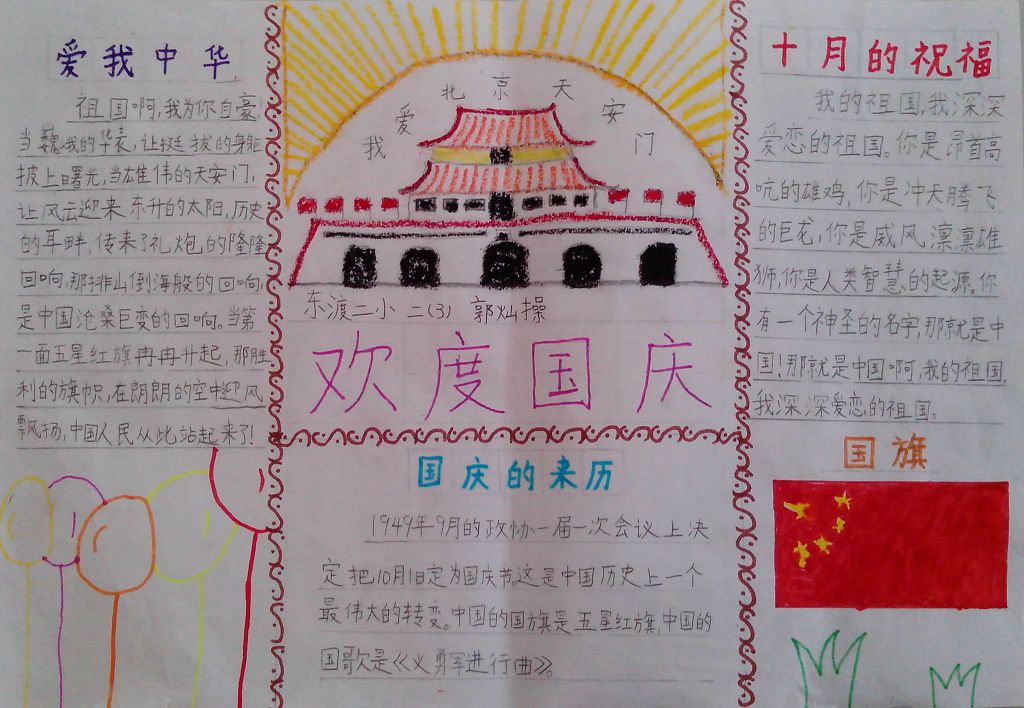 爱我中华
祖国啊,我为你自豪!
当巍峨的华表,让挺拔的身躯
披上曙光,当雄伟的天安门,
让风云迎来东升的太阳,历史
的耳畔,传来了礼炮的隆隆
回响,那排山倒海般的回响,
是中国沧桑巨变的回响。当第
一面五星红旗冉冉升起,那胜
利的旗帜,在朗朗的空中迎风
飘扬,中国人民从此站起来了!
我爱北京天安门
东渡二小 二(3) 郭灿操
欢度国庆
国庆的来历
1949年9月的政协一届一次会议上决
定把10月1日定为国庆节。这是中国历史上一个
最伟大的转变。中国的国旗是五星红旗,中国的
国歌是《义勇军进行曲》。
十月的祝福
我的祖国,我深深
爱恋的祖国。你是昂首高
吭的雄鸡,你是冲天腾飞
的巨龙,你是威风凛凛雄
狮,你是人类智慧的起源。你
有一个神圣的名字,那就是中
国!那就是中国啊,我的祖国,
我深深爱恋的祖国。
国旗